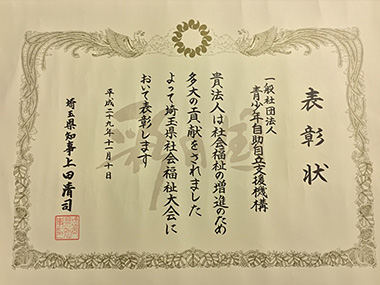 表彰状
一般社団法人
青少年自助自立支援機構
貴法人は社会福祉の増進のため
多大の貢献をされました
よって埼玉県社会福祉大会に
おいて表彰します
平成二十九年十一月十日
埼玉県知事上田清司